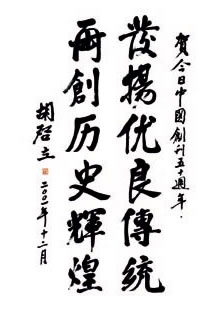 賀今日中國創刊五十週年·
發揚优良傳統
再創历史輝煌
胡啓立
二〇〇一年十二月